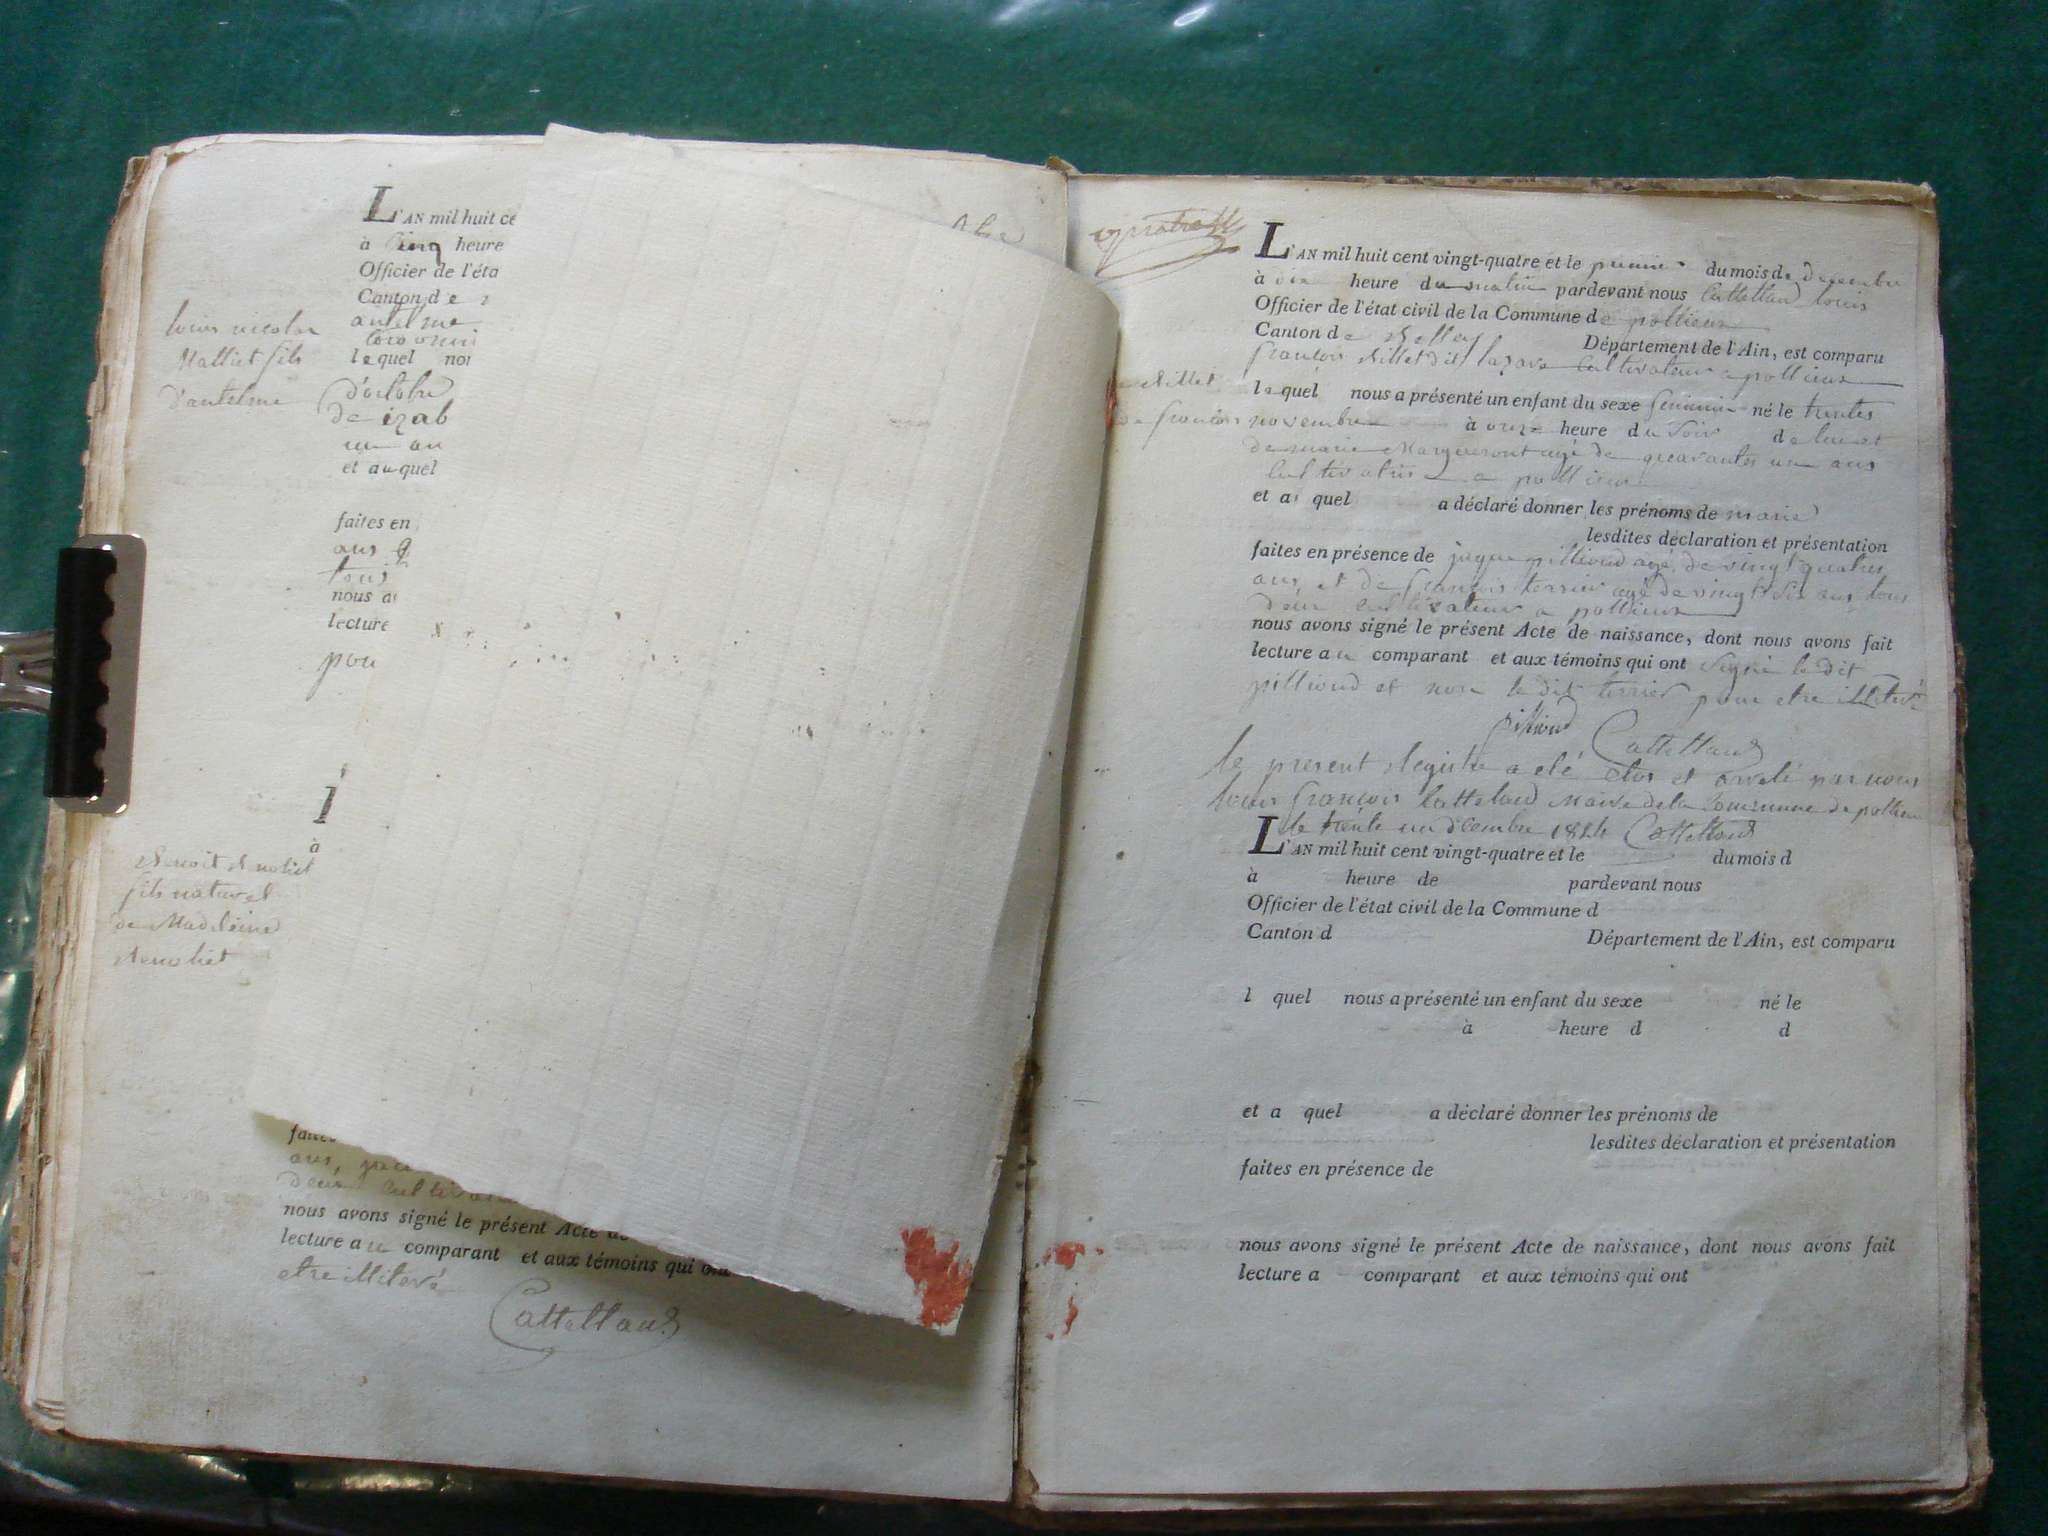 L'AN mil huit ce
à Cinq heure
Officier de l'éta
Canton de
anselme
lequel nou
d'octobre
De izab
un an
et auquel
faites en
ans
tous
nous a
lecture
pou
louis nicolas
Malliet fils
D'antelme
L
à
Benoit
fils naturel
de Madeleine
faites
ans,
Deux Cultivat
nous avons signé le présent Acte de
lecture au comparant et aux témoins qui ont
etre illiteré
Cattelland
L'AN mil huit cent vingt-quatre et le premier du mois de Decembre
à dix heure du matin pardevant nous Cattelland louis
Officier de l'état civil de la Commune de pollieux
Canton de Belley Département de l'Ain, est comparu
françois Billet dit lazare Cultivateur a pollieux
lequel nous a présenté un enfant du sexe feminin né le trentes
novembre à onze heure du Soir de lui et
de marie Margueront agé de quarantes un ans
Cultivatris a pollieux
et au quel a déclaré donner les prénoms de marie
lesdites déclaration et présentation
faites en présence de jaque pilliond agé de vingt quatres
ans et de françois terrier agé de vingt Six ans tous
Deux Cultivateur a pollieux
nous avons signé le présent Acte de naissance, dont nous avons fait
lecture au comparant et aux témoins qui ont Signé le dit
pilliond et non le dit terrier pour etre illiteré
Billet
de françois
pilliond Cattelland
le present Registre a eté Clos et arreté par nous
louis françois Cattelland Maire de la Commune de pollieu
le trente un decembre 1824 Cattelland
L'AN mil huit cent vingt-quatre et le du mois d
à heure de pardevant nous
Officier de l'état civil de la Commune d
Canton d Département de l'Ain, est comparu
l quel nous a présenté un enfant du sexe né le
à heure d d
et a quel a déclaré donner les prénoms de
lesdites déclaration et présentation
faites en présence de
nous avons signé le présent Acte de naissance, dont nous avons fait
lecture a comparant et aux témoins qui ont